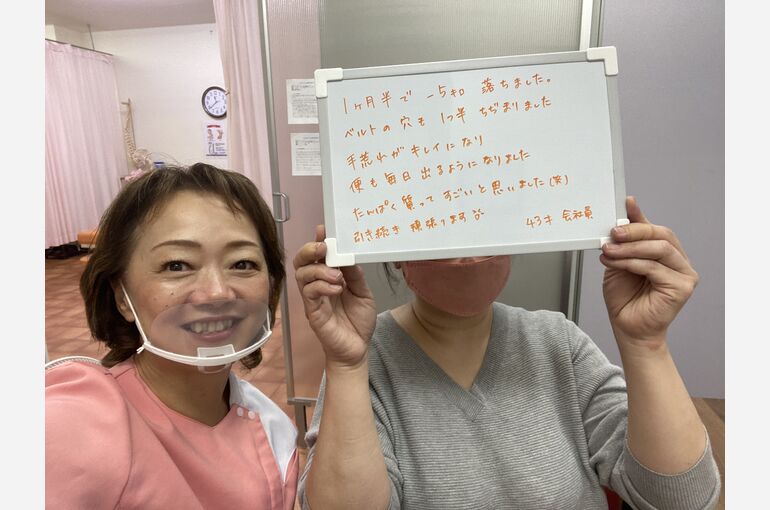 1ヶ月半で -5キロ 落ちました。
ベルトの穴も 1つ半 ちぢまりました
手荒れがキレイになり
便も毎日出るようになりました
たんぱく質ってすごいと思いました(笑)
引き続き 頑張ります
43才 会社員